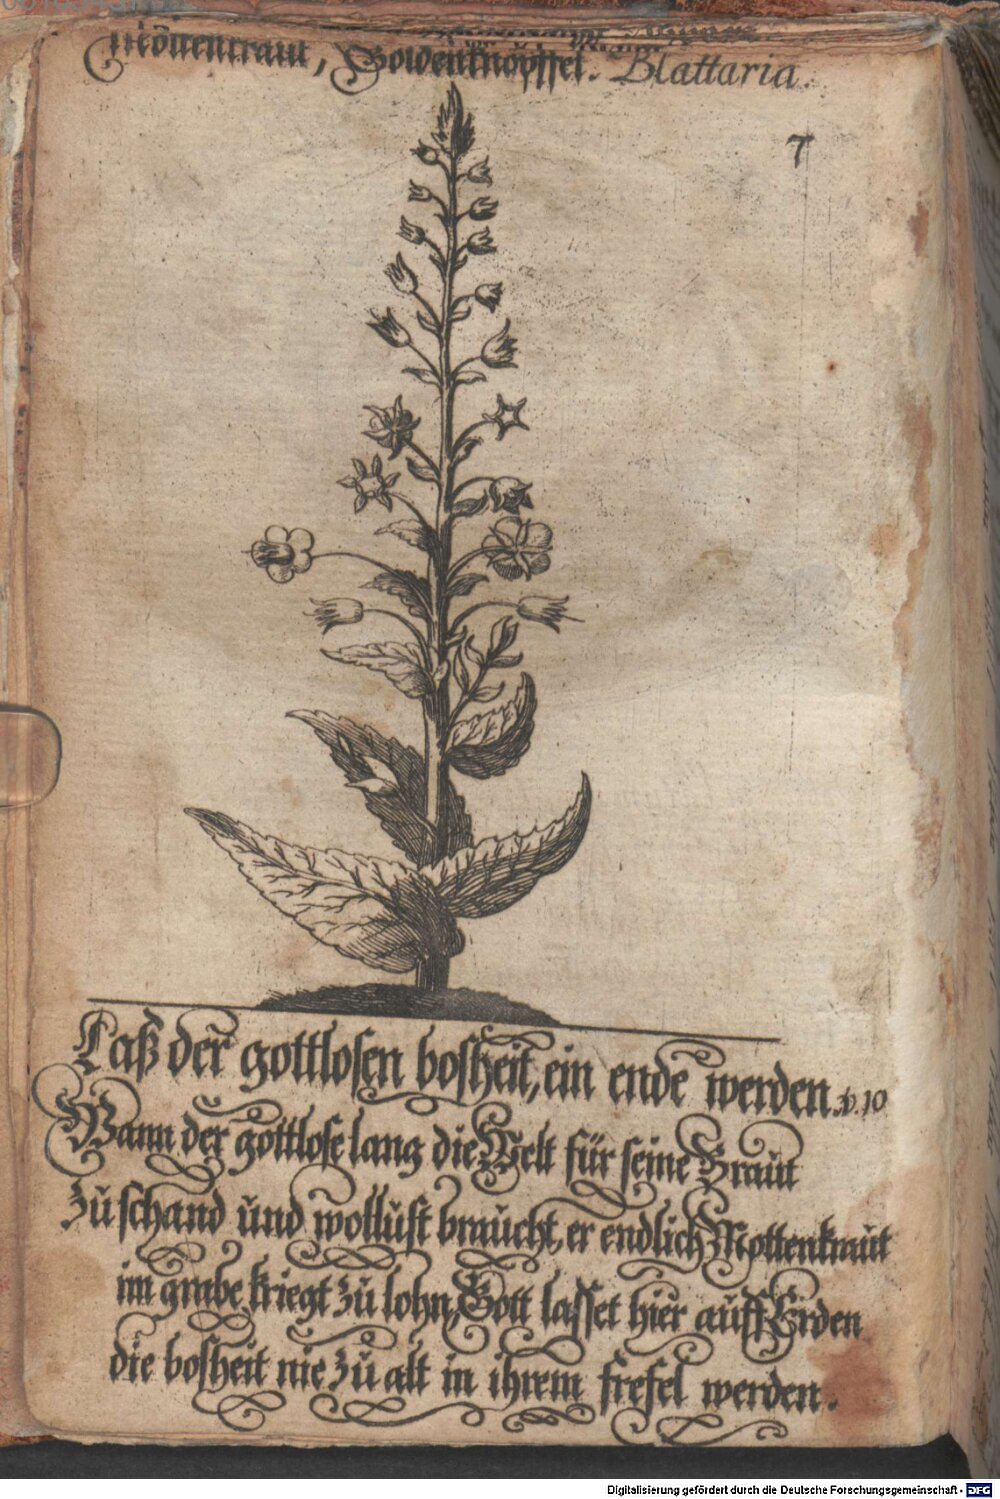 Mottenkraut, Goldenknöpffel. Blattaria.
7
Laß der gottlosen bosheit, ein ende werden. ps. 10
Wann der gottlose lang die Welt für seine Braut
zu schand und wollust braucht, er endlich Mottenkraut
im grabe kriegt zu lohn, Gott lasset hier auff Erden
die bosheit nie zu alt in ihrem frefel werden.
Digitalisierung gefördert durch die Deutsche Forschungsgemeinschaft - DFG